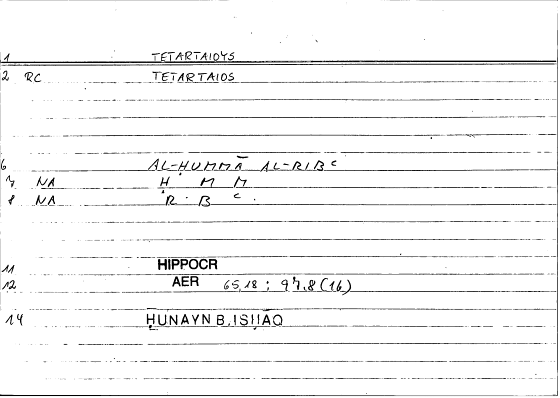 1 TETARTAIOYS
2 RC TETARTAIOS
6 AL-ḤUMMĀ AL-RIBᶜ
7 NA Ḥ M M
8 NA R B ᶜ
11 HIPPOCR
12 AER 65,18 ; 97,8 (16)
14 ḤUNAYN B. ISḤĀQ